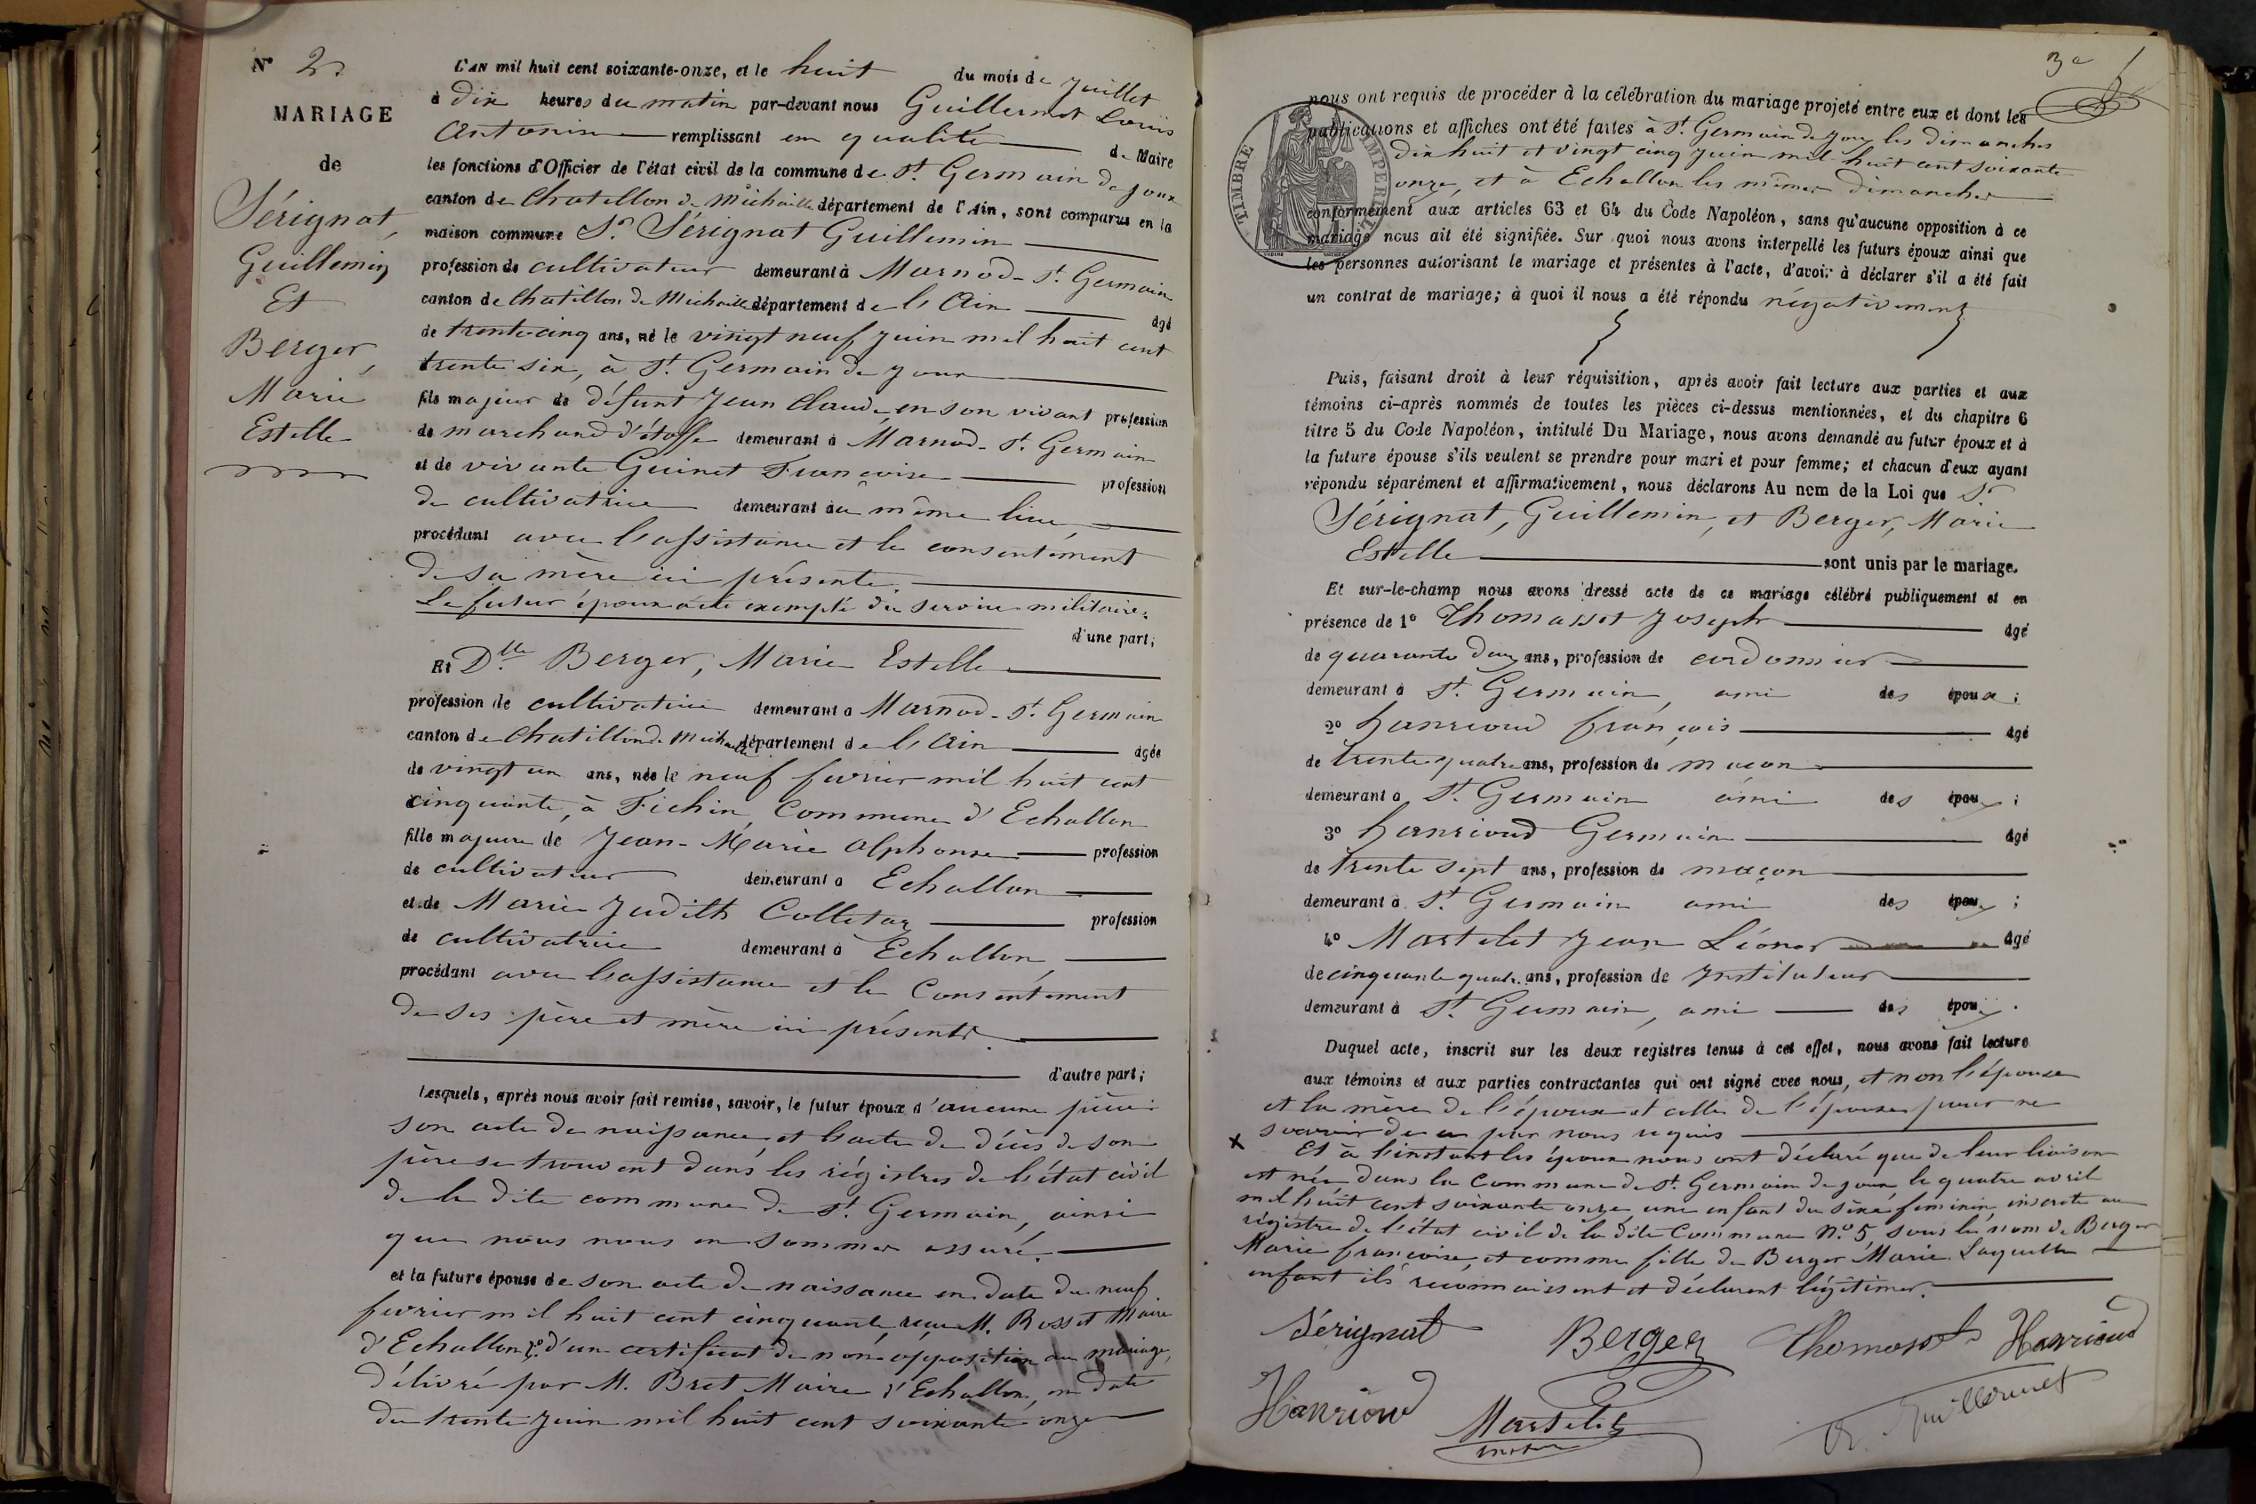 N° 2
MARIAGE
de
Sérignat,
Guillemin
Et
Berger,
Marie
Estelle
L'AN mil huit cent soixante-onze, et le huit du mois de Juillet
à dix heures du matin par-devant nous Guillermet Louis
Antonin remplissant en qualité de Maire
les fonctions d'Officier de l'état civil de la commune de St. Germain de Joux
canton de Chatillon de Michaille département de l'Ain, sont comparus en la
maison commune Sr. Sérignat Guillemin
profession de cultivateur demeurant à Marnod - St. Germain
canton de Chatillon de Michaille département de l'Ain âgé
de trente-cinq ans, né le vingt neuf Juin mil huit cent
trente six, à St. Germain de Joux
fils majeur de défunt Jean Claude en son vivant profession
de marchand d'étoffe demeurant à Marnod - St. Germain
et de vivante Guinet Françoise profession
de cultivatrice demeurant au même lieu
procédant avec l'assistance et le consentement
de sa mère ici présente.
Le futur époux a été exempté du service militaire.
d'une part;
Et Dlle Berger, Marie Estelle
profession de cultivatrice demeurant à Marnod - St. Germain
canton de Chatillon de Michaille département de l'Ain âgée
de vingt un ans, née le neuf fevrier mil huit cent
cinquante, à Fichin, Commune d'Echallon
fille majeure de Jean-Marie Alphonse profession
de cultivateur demeurant à Echallon
et de Marie Judith Colletaz profession
de cultivatrice demeurant à Echallon,
procédant avec l'assistance et le Consentement
de ses père et mère ici présents.
d'autre part;
Lesquels, après nous avoir fait remise, savoir, le futur époux d'aucune pièce
son acte de naissance et l'acte de décès de son
père se trouvent dans les régistres de l'état civil
de la dite commune de St. Germain, ainsi
que nous nous en sommes assuré.
et la future épouse de son acte de naissance en date du neuf
fevrier mil huit cent cinquante, reçu M. Rosset Maire
d'Echallon; 2° d'un certificat de non opposition au mariage,
délivré par M. Bret Maire d'Echallon, en date
du trente Juin mil huit cent soixante onze
3e
nous ont requis de procéder à la célébration du mariage projeté entre eux et dont les
publications et affiches ont été faites à St. Germain de Joux les dimanches
dix huit et vingt cinq Juin mil huit cent soixante
onze, et à Echallon les mêmes dimanches
TIMBRE IMPERIAL
conformément aux articles 63 et 64 du Code Napoléon, sans qu'aucune opposition à ce
mariage nous ait été signifiée. Sur quoi nous avons interpellé les futurs époux ainsi que
les personnes autorisant le mariage et présentes à l'acte, d'avoir à déclarer s'il a été fait
un contrat de mariage; à quoi il nous a été répondu négativement
Puis, faisant droit à leur réquisition, après avoir fait lecture aux parties et aux
témoins ci-après nommés de toutes les pièces ci-dessus mentionnées, et du chapitre 6
titre 5 du Code Napoléon, intitulé Du Mariage, nous avons demandé au futur époux et à
la future épouse s'ils veulent se prendre pour mari et pour femme; et chacun d'eux ayant
répondu séparément et affirmativement, nous déclarons Au nom de la Loi que Sr
Sérignat, Guillemin, et Berger, Marie
Estelle sont unis par le mariage.
Et sur-le-champ nous avons dressé acte de ce mariage célébré publiquement et en
présence de 1° Thomasset Joseph âgé
de quarante deux ans, profession de cordonnier
demeurant à St. Germain, ami des époux;
2° Hanrioud françois âgé
de trente quatre ans, profession de maçon
demeurant à St. Germain ami des époux;
3° Hanrioud Germain âgé
de trente sept ans, profession de maçon
demeurant à St. Germain ami des époux;
4° Martelet Jean Léonor âgé
de cinquante quatre ans, profession de Instituteur
demeurant à St. Germain, ami des époux.
Duquel acte, inscrit sur les deux registres tenus à cet effet, nous avons fait lecture
aux témoins et aux parties contractantes qui ont signé avec nous, et non l'épouse
et la mère de l'époux et celle de l'épouse pour ne
savoir de ce par nous requis
x Et à l'instant les époux nous ont déclaré que de leur liaison
est née dans la Commune de St. Germain de Joux le quatre avril
mil huit cent soixante onze une enfant du sèxe féminin, inscrite au
régistre de l'état civil de la dite Commune N° 5, sous le nom de Berger
Marie françoise, et comme fille de Berger Marie. Laquelle
enfant ils reconnaissent et déclarent légitimer.
Sérignat Berger Thomasset Hanrioud
Hanrioud Martelet A. Guillermet